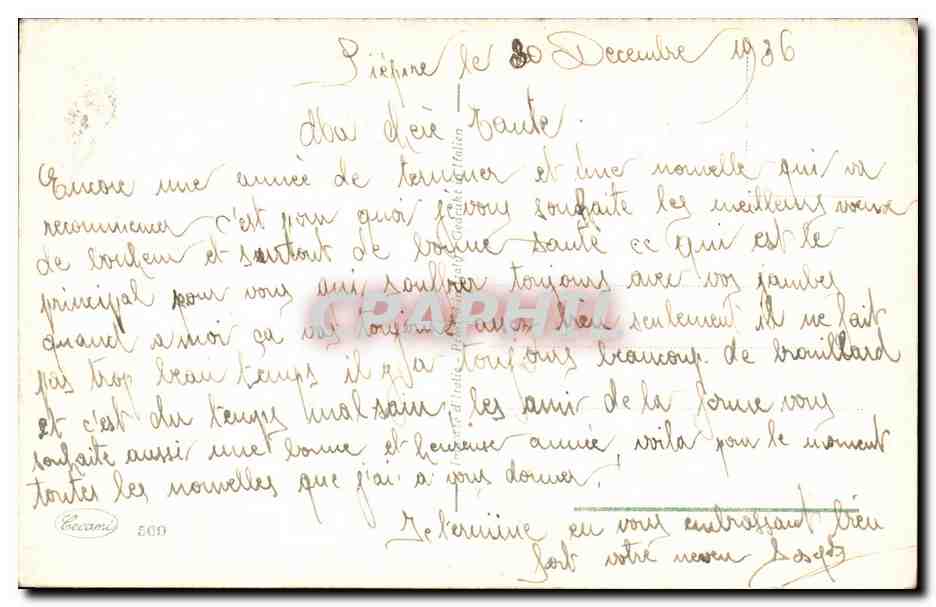 le 30 Decembre 1936
Ma chère Tante.
Encore une année de terminer et une nouvelle qui va
recommencer c'est pour quoi je vous souhaite les meilleurs voeux
de bonheur et surtout de bonne santé ce qui est le
principal pour vous qui souffrez toujours avec vos jambes
quand a moi ça vas toujours assez bien seulement il ne fait
pas trop beau temps il y a toujours beaucoup de brouillard
et c'est du temps malsain. les amis de la ferme vous
souhaite aussi une bonne et heureuse année, voila pour le moment
toutes les nouvelles que j'ai a vous donner.
Je termine en vous embrassant bien
fort votre neveu
CPAPHIL
Cecami 569